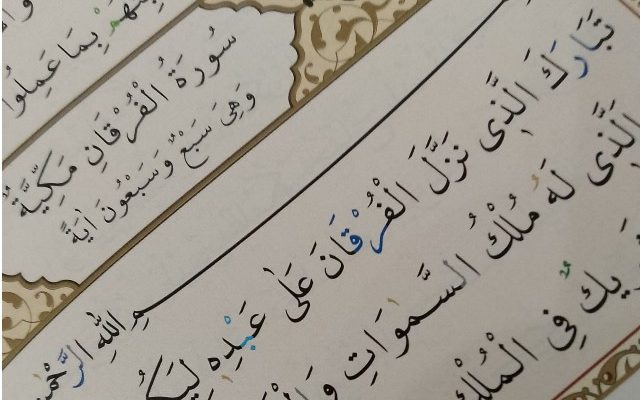 بِمَا عَمِلُوا
سُورَةُ الْفُرْقَانِ مَكِّيَّةٌ
وَهِيَ سَبْعٌ وَسَبْعُونَ اٰيَةً
بِسْمِ اللّٰهِ الرَّحْمٰنِ
تَبَارَكَ الَّذٖى نَزَّلَ الْفُرْقَانَ عَلٰى عَبْدِهٖ
اَلَّذٖى لَهُ مُلْكُ السَّمٰوَاتِ
فِى الْمُلْكِ